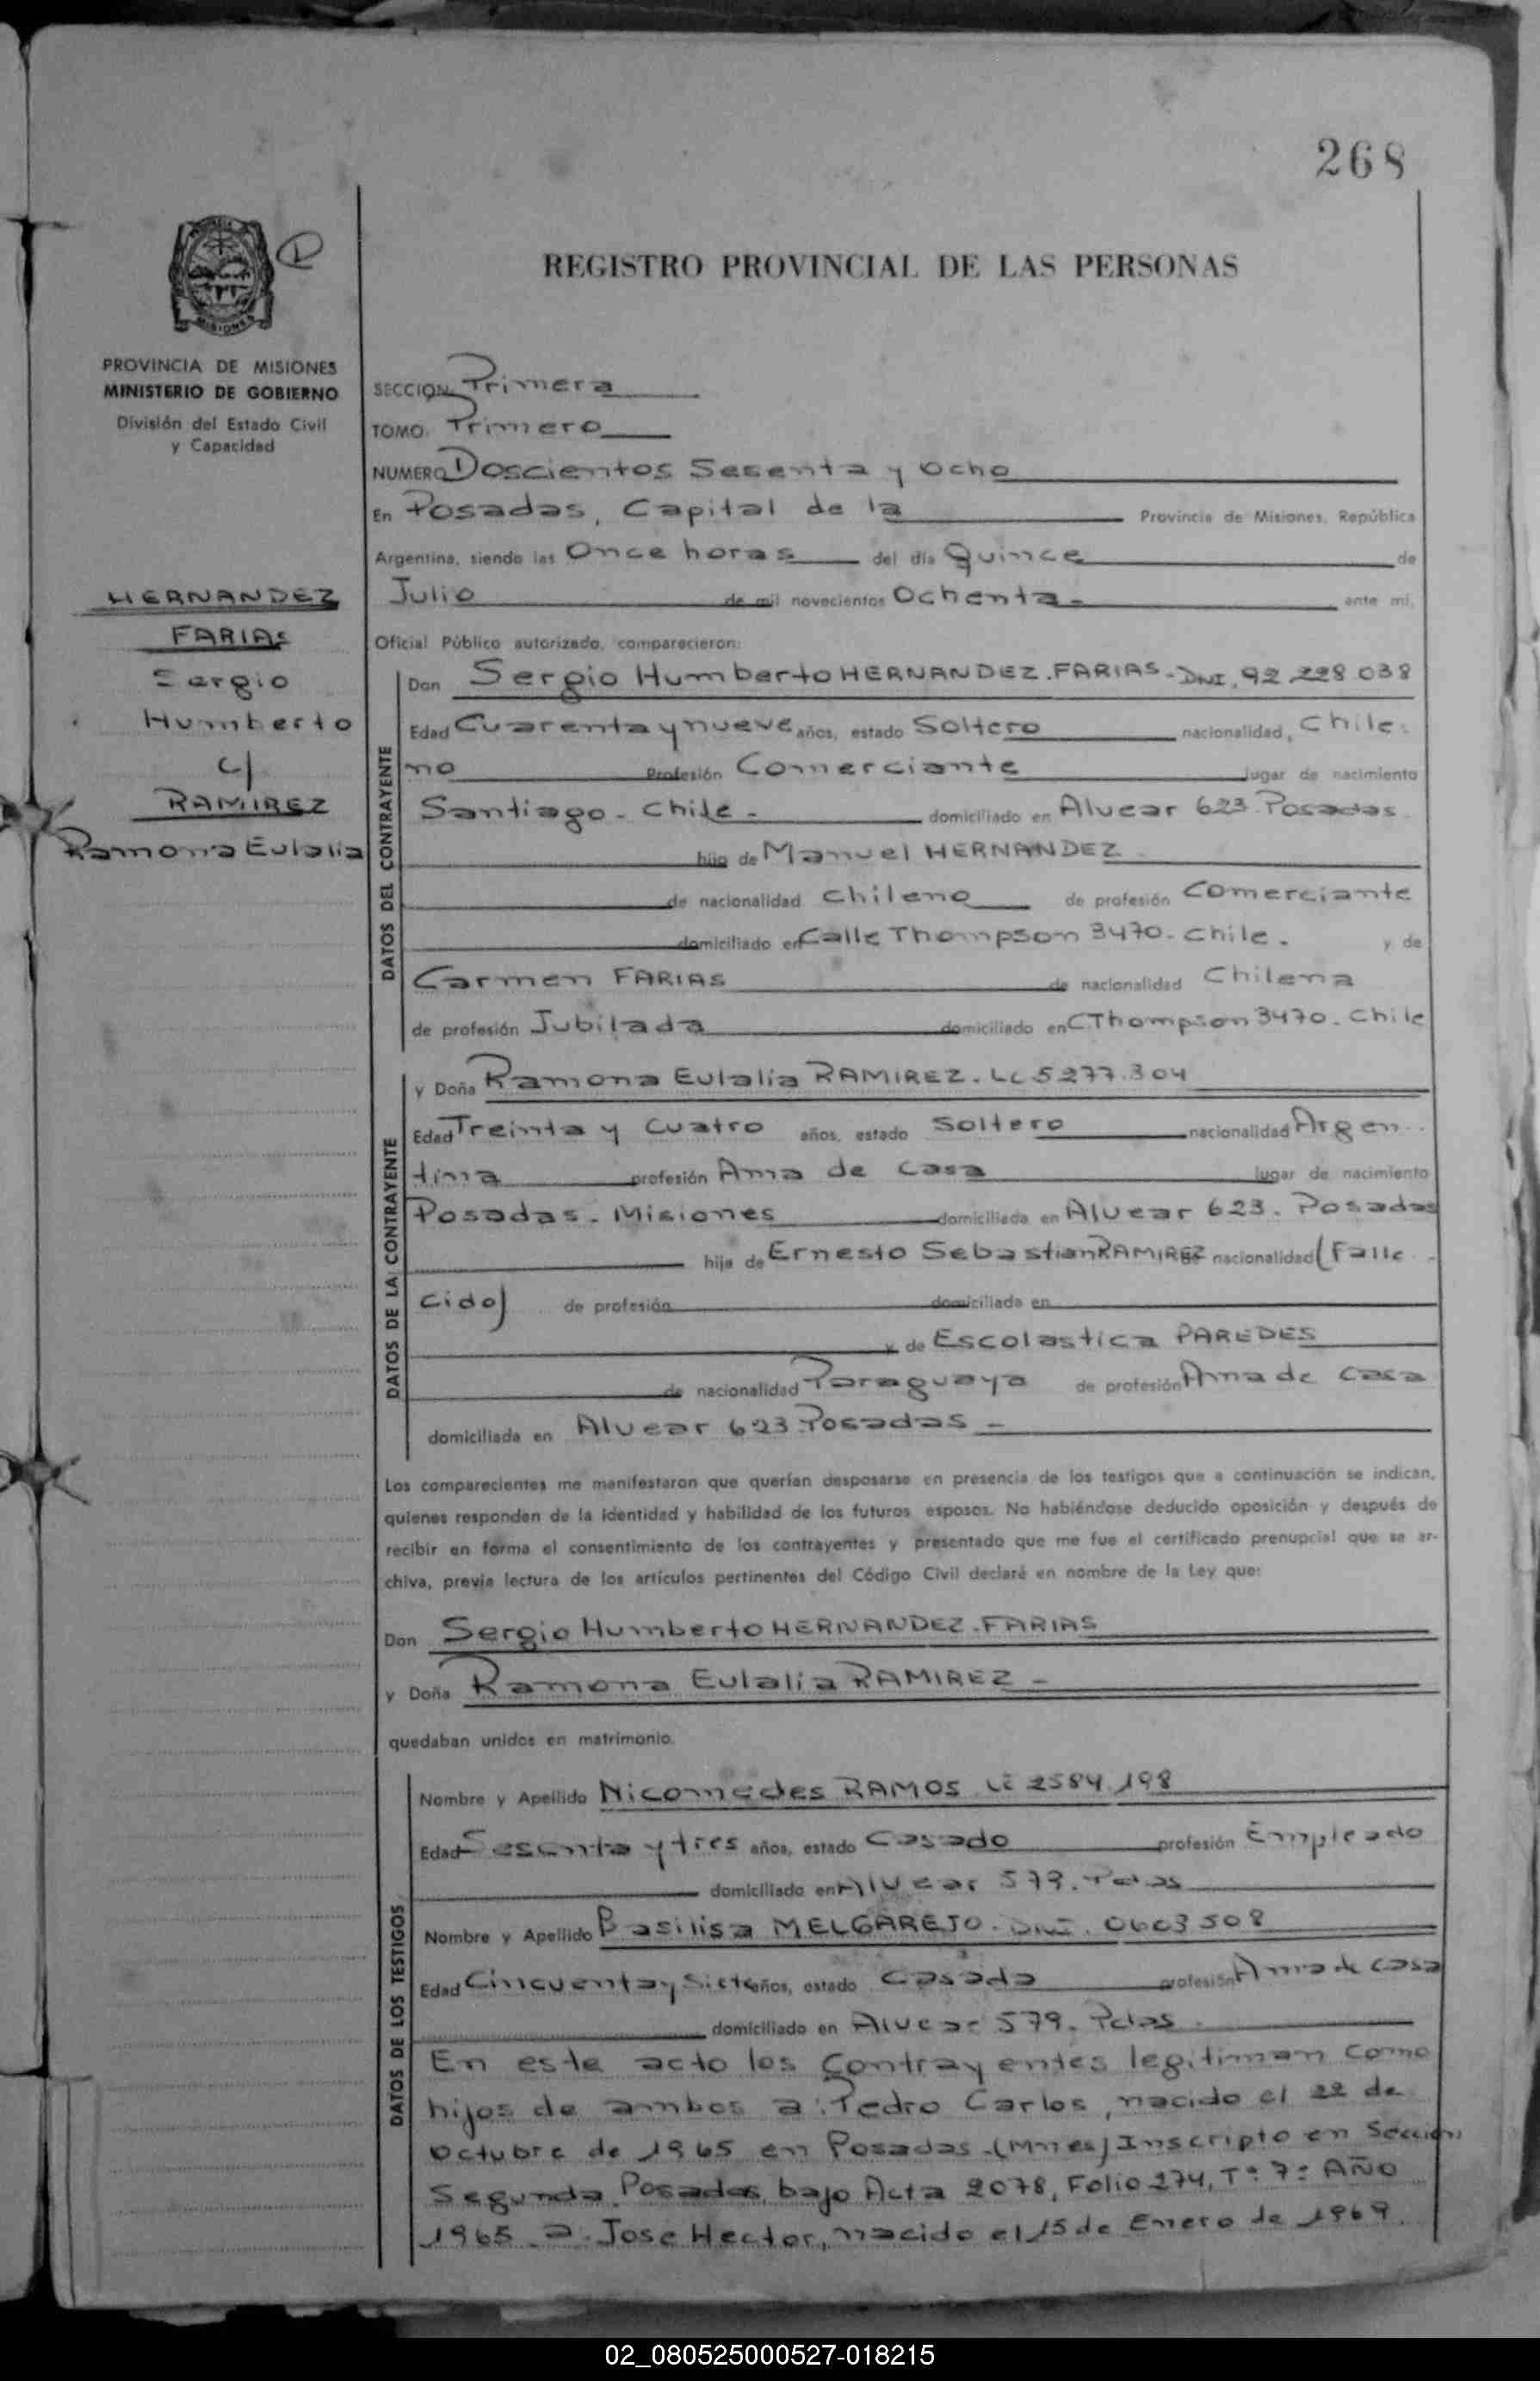 268
REGISTRO PROVINCIAL DE LAS PERSONAS
MISIONES
PROVINCIA DE MISIONES
MINISTERIO DE GOBIERNO
División del Estado Civil
y Capacidad
HERNANDEZ
FARIAS
Sergio
Humberto
c/
RAMIREZ
Ramona Eulalia
SECCION Primera
TOMO Primero
NUMERO Doscientos Sesenta y Ocho
En Posadas, Capital de la Provincia de Misiones, República
Argentina, siendo las Once horas del día Quince de
Julio de mil novecientos Ochenta- ante mí,
Oficial Público autorizado, comparecieron:
DATOS DEL CONTRAYENTE
Don Sergio Humberto HERNANDEZ.FARIAS-DNI.92.228.038
Edad Cuarenta y nueve años, estado Soltero nacionalidad, Chile-
no Profesión Comerciante lugar de nacimiento
Santiago-Chile- domiciliado en Alvear 623.Posadas
hijo de Manuel HERNANDEZ
de nacionalidad chileno de profesión Comerciante
domiciliado en Calle Thompson 3470-Chile. y de
Carmen FARIAS de nacionalidad Chilena
de profesión Jubilada domiciliado en C.Thompson 3470.Chile
DATOS DE LA CONTRAYENTE
y Doña Ramona Eulalia RAMIREZ.LC 5277.304
Edad Treinta y Cuatro años, estado Soltero nacionalidad Argen-
tina profesión Ama de Casa lugar de nacimiento
Posadas-Misiones domiciliada en Alvear 623. Posadas
hija de Ernesto Sebastian RAMIREZ de nacionalidad (Falle-
cido) de profesión domiciliada en
y de Escolastica PAREDES
de nacionalidad Paraguaya de profesión Ama de Casa
domiciliada en Alvear 623.Posadas-
Los comparecientes me manifestaron que querían desposarse en presencia de los testigos que a continuación se indican,
quienes responden de la identidad y habilidad de los futuros esposos. No habiéndose deducido oposición y después de
recibir en forma el consentimiento de los contrayentes y presentado que me fue el certificado prenupcial que se ar-
chiva, previa lectura de los artículos pertinentes del Código Civil declaré en nombre de la Ley que:
Don Sergio Humberto HERNANDEZ.FARIAS
y Doña Ramona Eulalia RAMIREZ-
quedaban unidos en matrimonio.
DATOS DE LOS TESTIGOS
Nombre y Apellido Nicomedes RAMOS LE 2584.198
Edad Sesenta y tres años, estado Casado profesión Empleado
domiciliado en Alvear 579. Pdas
Nombre y Apellido Basilisa MELGAREJO-DNI. 0603508
Edad Cincuenta y Siete años, estado Casada profesión Ama de casa
domiciliado en Alvear 579. Pdas.
En este acto los Contrayentes legitiman como
hijos de ambos a: Pedro Carlos, nacido el 22 de
Octubre de 1965 en Posadas.(Mnes) Inscripto en Sección
Segunda Posadas, bajo Acta 2078, Folio 274, T° 7: AÑO
1965. a: Jose Hector, nacido el 15 de Enero de 1969.
02_080525000527-018215